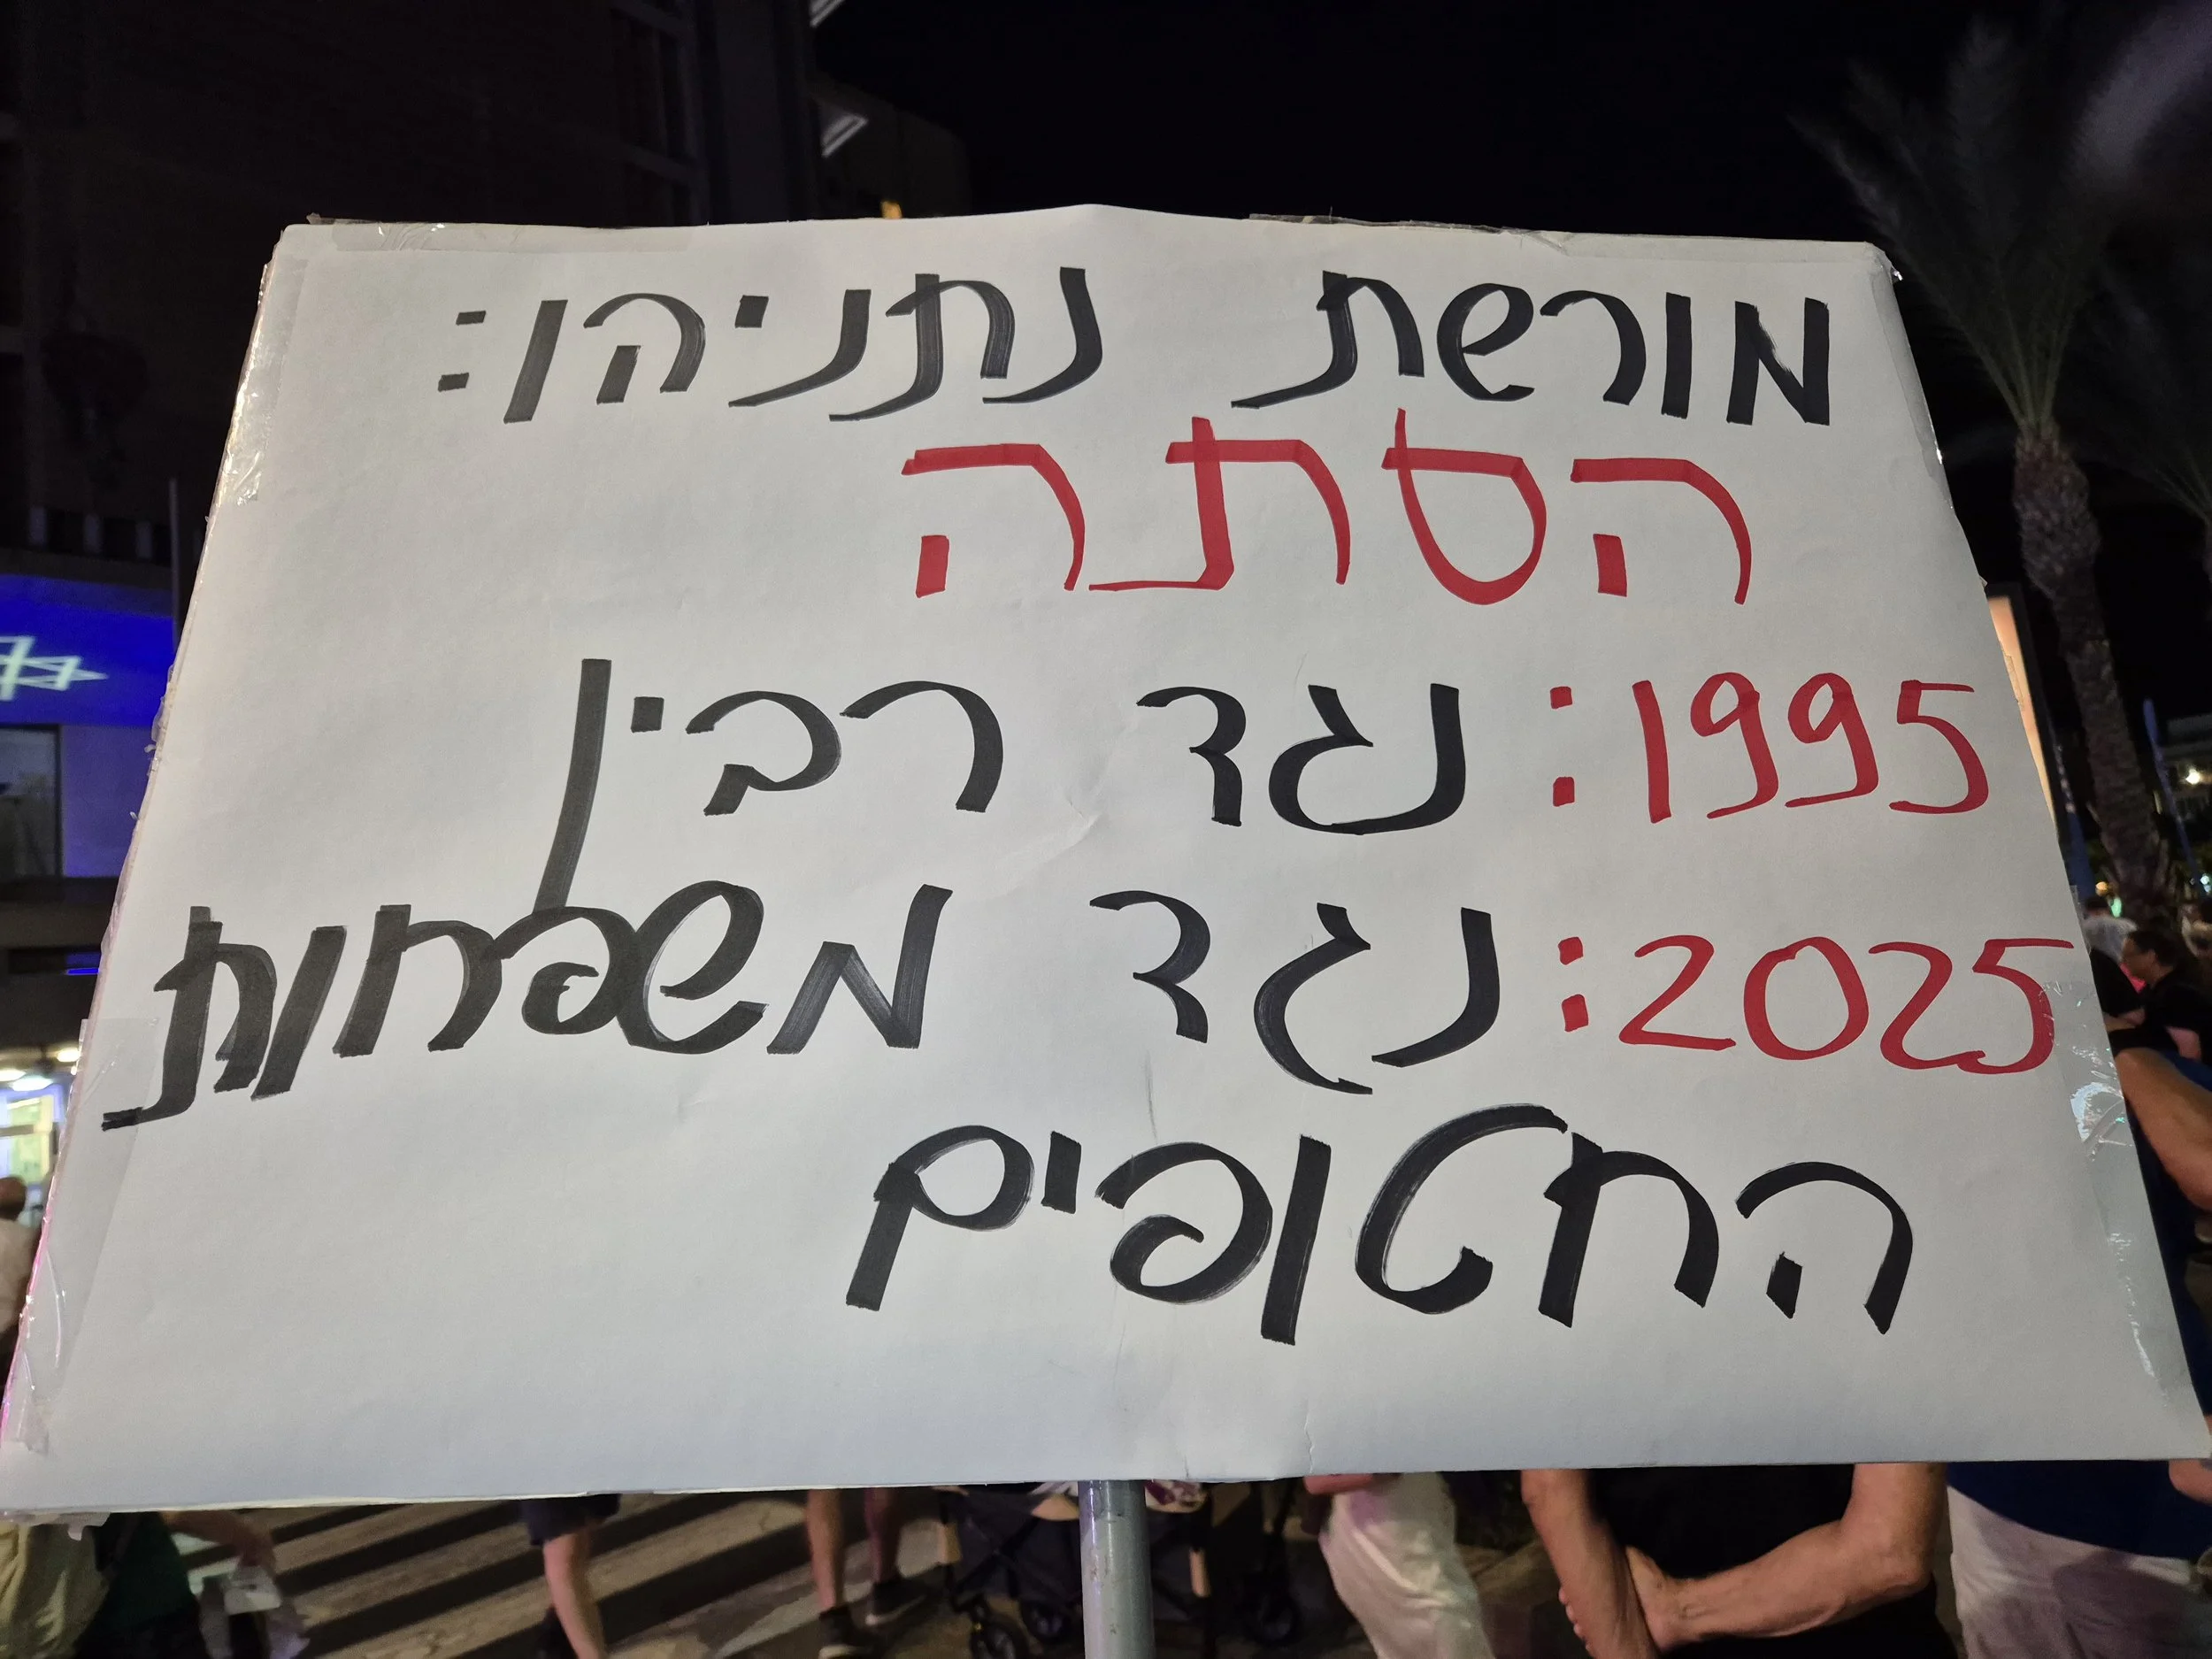 מורשת נתניהו:
הסתה
1995: נגד רבין
2025: נגד משפחות
החטופים